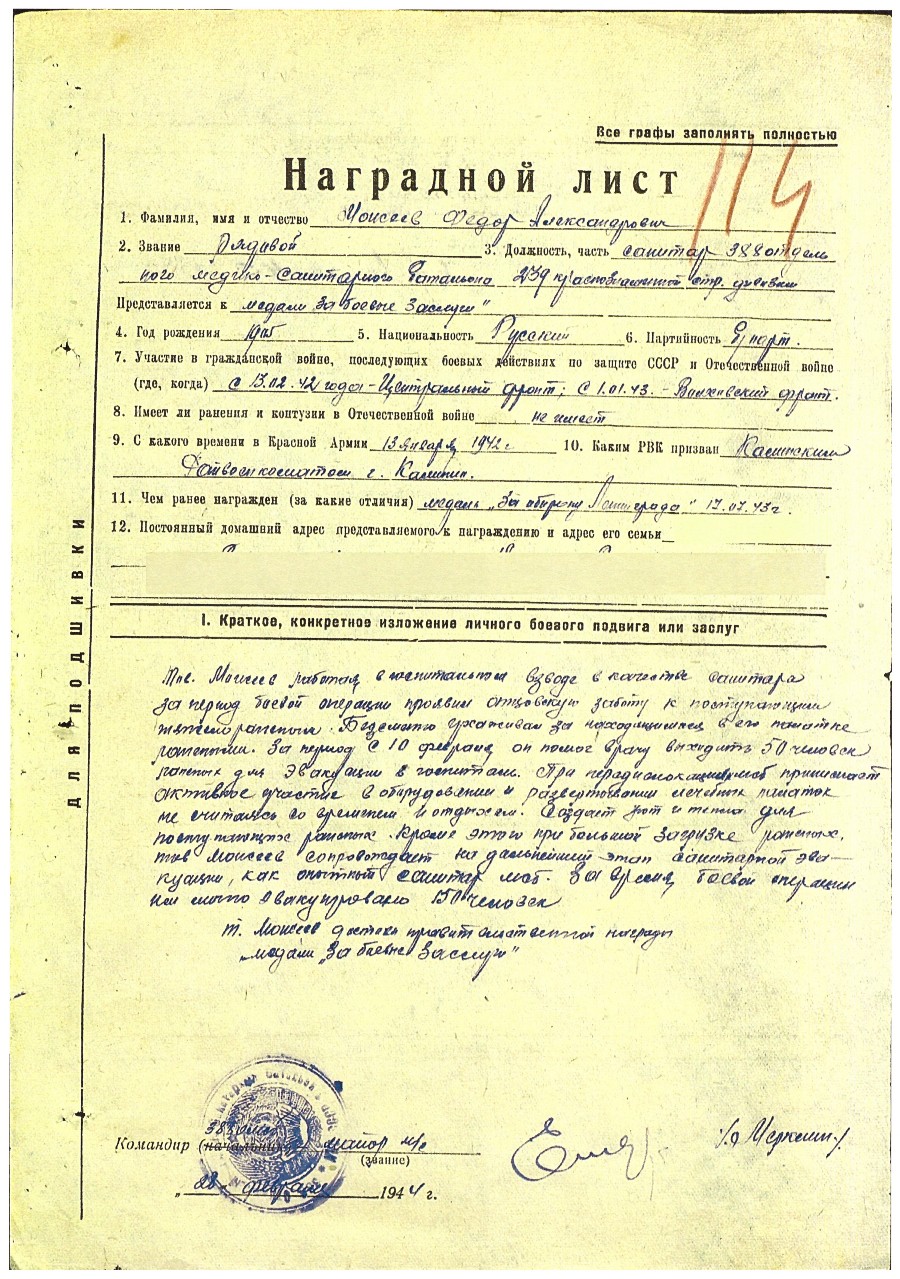 Все графы заполнять полностью
114
Наградной лист
1. Фамилия, имя и отчество Моисеев Федор Александрович
2. Звание Рядовой 3. Должность, часть санитар 388 отдель
ного медико-санитарного батальона 239 краснознаменной стр. дивизии
Представляется к медали "За боевые заслуги"
4. Год рождения 1905 5. Национальность Русский 6. Партийность б/парт.
7. Участие в гражданской войне, последующих боевых действиях по защите СССР и Отечественной войне
(где, когда) с 13.02.42 года - Центральный фронт; с 1.01.43. - Волховский фронт.
8. Имеет ли ранения и контузии в Отечественной войне не имеет
9. С какого времени в Красной Армии 13 января 1942 г 10. Каким РВК призван
Райвоенкоматом г. Калинин.
11. Чем ранее награжден (за какие отличия) медаль "За оборону Ленинграда" 17.07.43 г.
12. Постоянный домашний адрес представляемого к награждению и адрес его семьи
ДЛЯ ПОДШИВКИ
I. Краткое, конкретное изложение личного боевого подвига или заслуг
Тов. Моисеев работая в госпитальном взводе в качестве санитара
за период боевой операции проявил отцовскую заботу к поступающим
тяжелораненым. Безсменно ухаживал за находящимися в его палатке
ранеными. За период с 10 февраля он помог врачу выходить 50 человек
раненых для эвакуации в госпиталя. При передислокации мсб принимает
активное участие в оборудовании и развертывании лечебных палаток
не считаясь со временем и отдыхом. Создает уют и тепло для
поступающих раненых. Кроме этого при большой загрузке раненых,
тов Моисеев сопровождает на дальнейший этап санитарной эва-
куации, как опытный санитар мсб. За время боевой операции
им лично эвакуировано 150 человек
т. Моисеев достоин правительственной награды
медали "За боевые заслуги"
Командир (начальник) 388 майор м/с
(звание)
"28" февраля 1944 г.